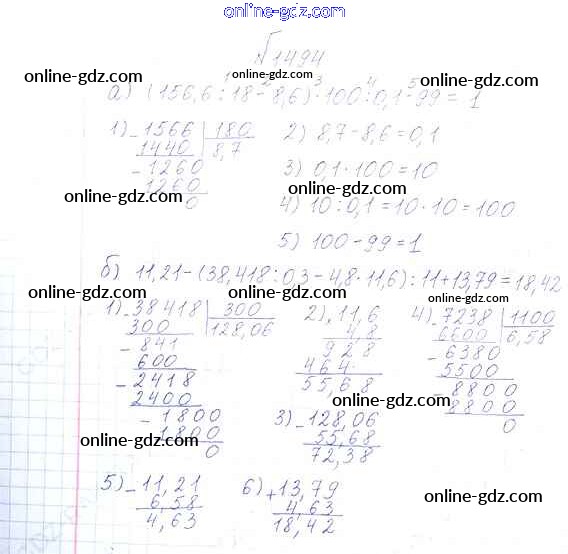 online-gdz.com
№1494
online-gdz.com online-gdz.com online-gdz.com
1 2 3 4 5
а) (156,6 : 18 - 8,6) · 100 : 0,1 - 99 = 1
1) - 1566 | 180
1440 8,7
- 1260
1260
0
2) 8,7 - 8,6 = 0,1
3) 0,1 · 100 = 10
online-gdz.com online-gdz.com
4) 10 : 0,1 = 10 · 10 = 100
5) 100 - 99 = 1
online-gdz.com online-gdz.com
б) 11,21 - (38,418 : 0,3 - 4,8 · 11,6) : 11 + 13,79 = 18,42
online-gdz.com online-gdz.com online-gdz.com
1) - 38418 | 300
300 128,06
- 841
600
- 2418
2400
- 1800
1800
0
2) 11,6
4,8
928
464
55,68
4) - 7238 | 1100
6600 6,58
- 6380
5500
8800
8800
0
online-gdz.com
3) - 128,06
55,68
72,38
online-gdz.com online-gdz.com
5) - 11,21
6,58
4,63
6) + 13,79
4,63
18,42
online-gdz.com
online-gdz.com